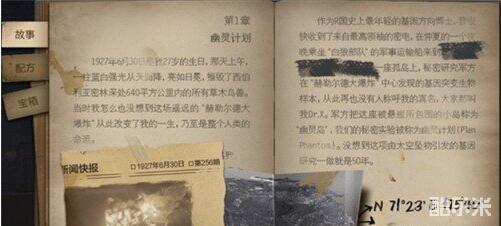 故事
配方
宝箱
第1章
幽灵计划
1927年6月30日是我27岁的生日，那天上午，
一柱蓝白强光从天而降，亮如白昼，摧毁了西伯
利亚密林深处640平方公里内的所有草木鸟兽。
当时我怎么也没想到这场遥远的“赫勒尔德大
爆炸”从此改变了我的一生，乃至是整个人类的
命运。
新闻快报
□1927年6月30日 □第256期
作为R国史上最年轻的基因方向博士，我很
快收到了来自最高领袖的密电，在仲夏的一个夜
晚乘坐“白狼部队”的军事运输船来到
一座孤岛上，秘密研究军方
在“赫勒尔德大爆炸”中心发现的基因突变生物
样本，从此再也没有人称呼我的真名，大家都叫
我Dr.X。军方把这座被悬崖所包围的小岛称为
“幽灵岛”，我们的秘密实验被称为幽灵计划(Plan
Phantom)。没想到这项由太空坠物引发的基因
研究一做就是50年。
N 71°23′N
酷小米